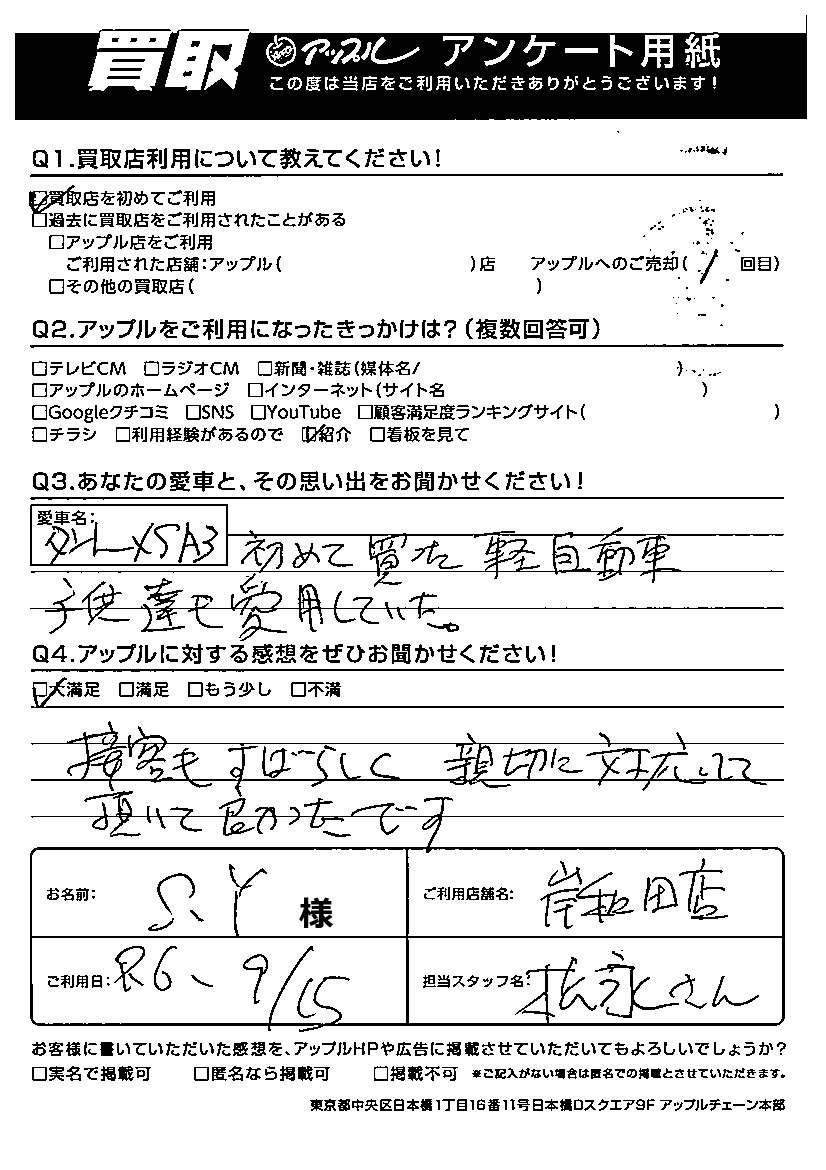 買取 アップル アンケート用紙
この度は当店をご利用いただきありがとうございます!
Q1.買取店利用について教えてください!
☑買取店を初めてご利用
□過去に買取店をご利用されたことがある
□アップル店をご利用
ご利用された店舗:アップル( )店 アップルへのご売却( 1 回目)
□その他の買取店( )
Q2.アップルをご利用になったきっかけは?(複数回答可)
□テレビCM □ラジオCM □新聞・雑誌(媒体名/ )
□アップルのホームページ □インターネット(サイト名 )
□Googleクチコミ □SNS □YouTube □顧客満足度ランキングサイト( )
□チラシ □利用経験があるので ☑紹介 □看板を見て
Q3.あなたの愛車と、その思い出をお聞かせください!
愛車名:
タントXSA3 初めて買った軽自動車
子供達も愛用していた。
Q4.アップルに対する感想をぜひお聞かせください!
☑大満足 □満足 □もう少し □不満
接客もすばらしく 親切に対応して
頂いて良かったです
お名前: S.Y 様 ご利用店舗名: 岸和田店
ご利用日: R6、9/15 担当スタッフ名: 松永さん
お客様に書いていただいた感想を、アップルHPや広告に掲載させていただいてもよろしいでしょうか?
□実名で掲載可 □匿名なら掲載可 □掲載不可 ※ご記入がない場合は匿名での掲載とさせていただきます。
東京都中央区日本橋1丁目16番11号日本橋Dスクエア9F アップルチェーン本部